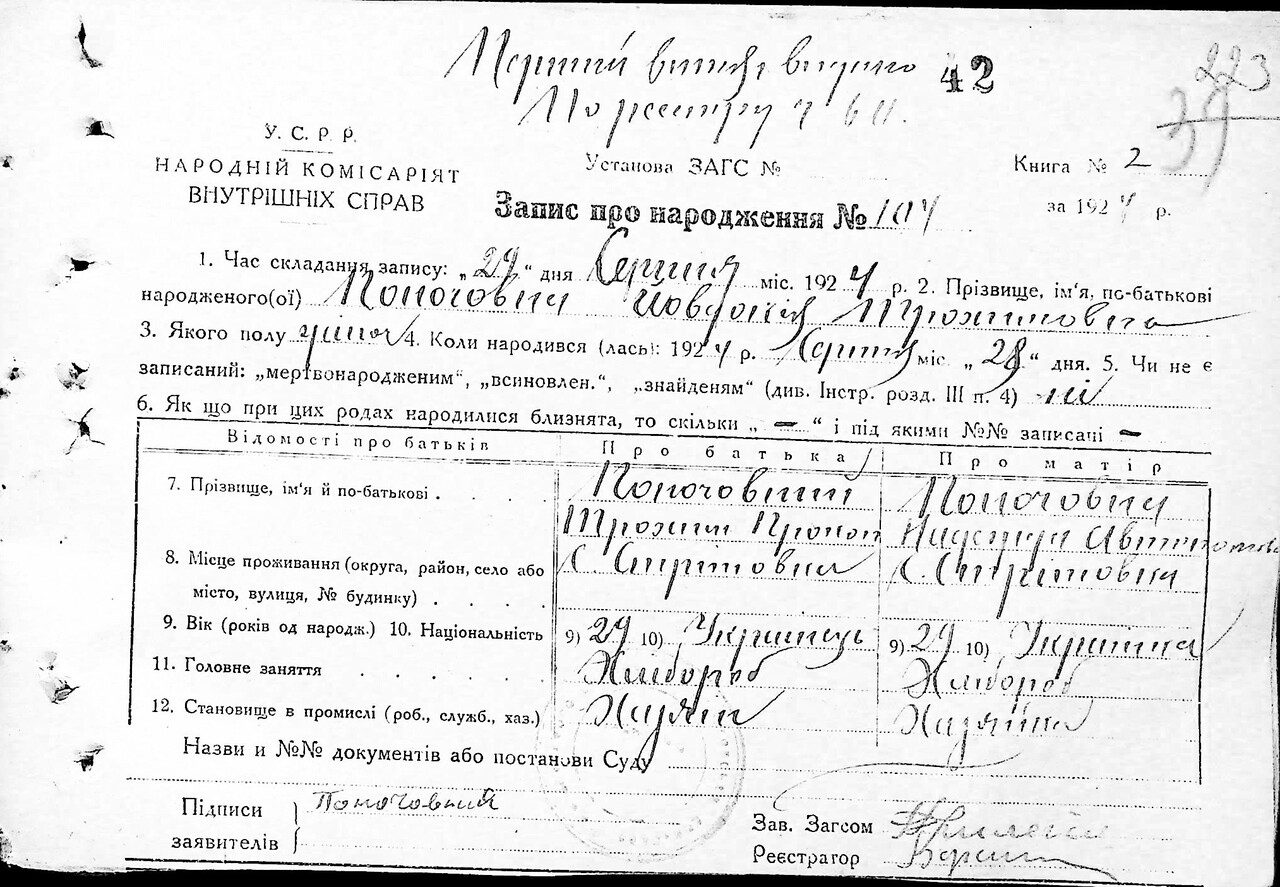 Перший витяг видано 42
По реєстру № 223
39
У. С. Р. Р.
НАРОДНІЙ КОМІСАРІЯТ
ВНУТРІШНІХ СПРАВ
Установа ЗАГС №
Книга № 2
Запис про народження № 104
за 1924 р.
1. Час складання запису: „29“ дня Серпня міс. 1924 р. 2. Прізвище, ім'я, по-батькові
народженого(ої) Явдокія Трохимовна
3. Якого полу жіноч 4. Коли народився (лась): 1924 р. Серпня міс. „28“ дня. 5. Чи не є
записаний: „мертвонародженим“, „всиновлен.“, „знайденям“ (див. Інстр. розд. III п. 4) ні
6. Як що при цих родах народилися близнята, то скільки „ — “ і під якими №№ записані —
Відомості про батьків Про батька Про матір
7. Прізвище, ім'я й по-батькові . . . . Поночовний Поночовна
Трохим Прокоп Надежда
8. Місце проживання (округа, район, село або С. Стрітовка С. Стрітовка
місто, вулиця, № будинку) . . . .
9. Вік (років од народж.) 10. Національність 9) 29 10) Українець 9) 29 10) Українка
11. Головне заняття . . . . . Хлібороб Хлібороб
12. Становище в промислі (роб., служб., хаз.) Хазяін Хазяйка
Назви и №№ документів або постанови Суду
Підписи Поночовний
заявителів
Зав. Загсом
Реєстрагор